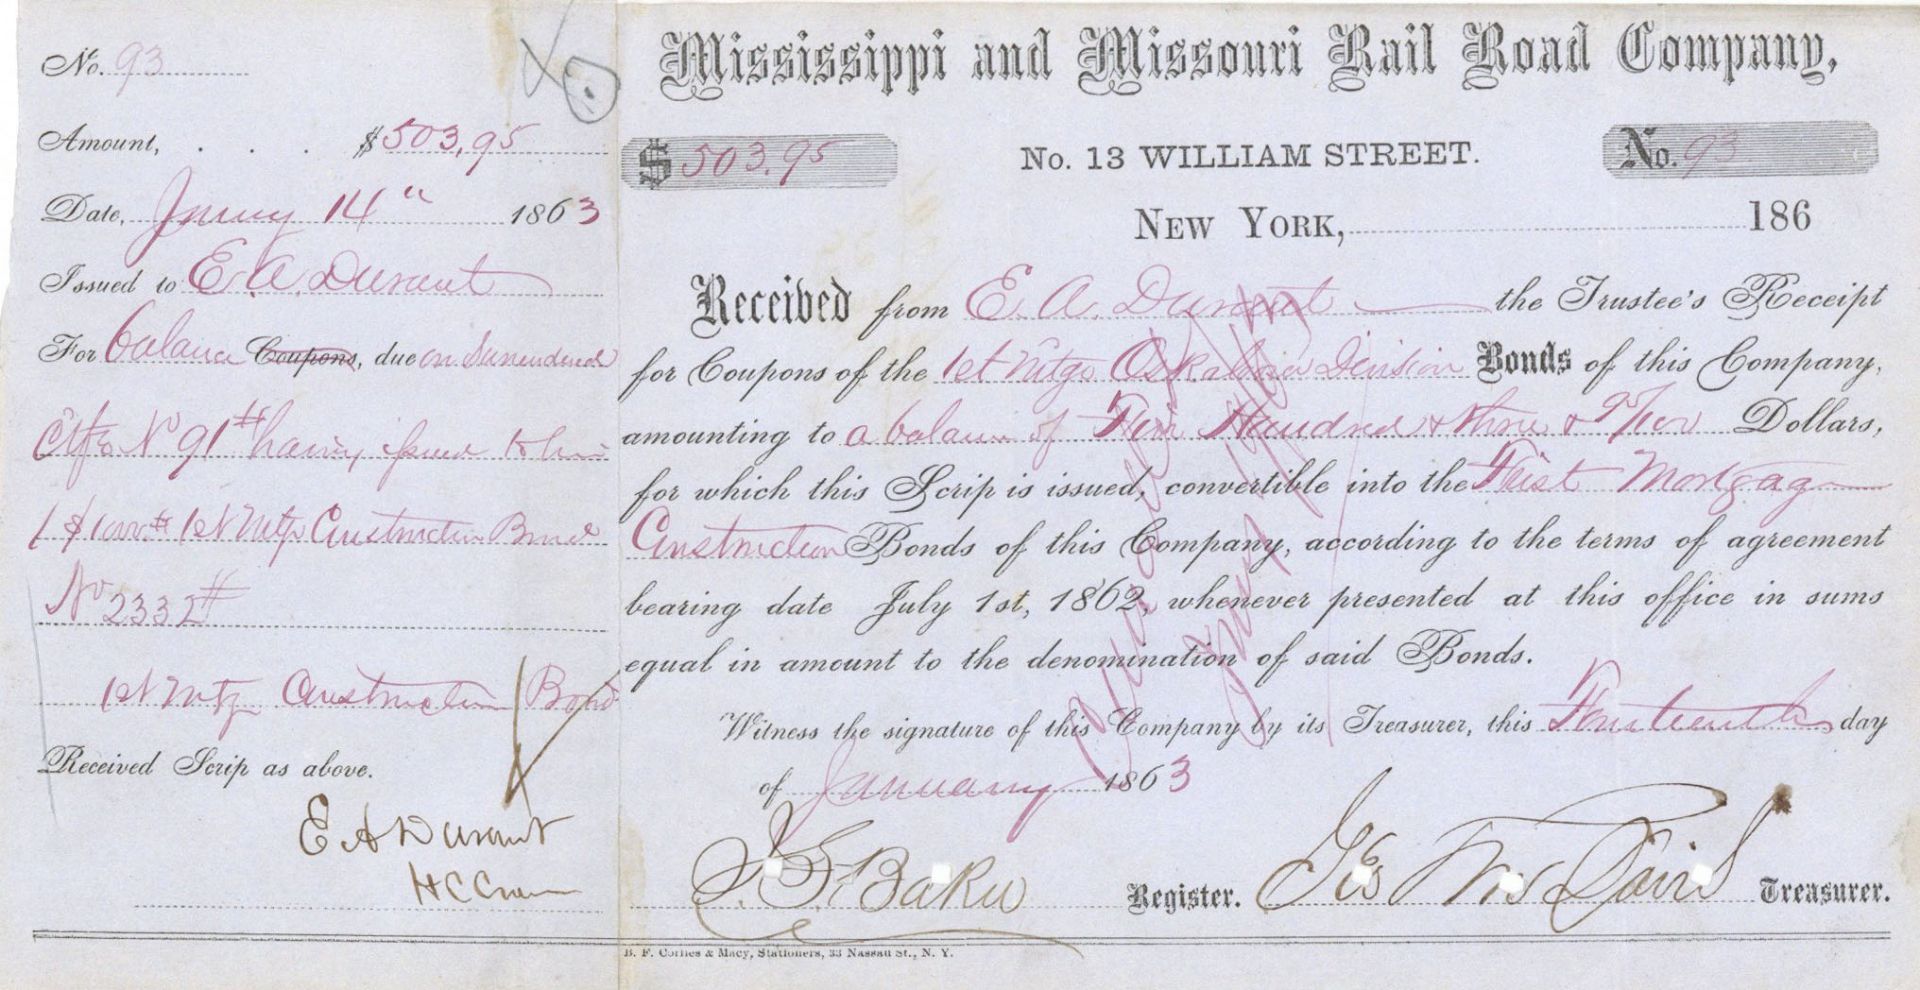 No. 93
Amount, . . . $503,95
Date, Jnuary 14" 1863
Issued to E. A. Durant
For balance Coupons, due on Surrendered
Ctfe No 91# having issued to him
1 $1000# 1st Mtge Construction Bond
No 2332#
1st Mtg Construction Bond
Received Scrip as above.
E A Durant
H C Crane
Mississippi and Missouri Rail Road Company,
$ 503.95
No. 13 WILLIAM STREET.
No. 93
NEW YORK, 186
Received from E. A. Durant the Trustee's Receipt
for Coupons of the 1st Mtge Oskaloosa Division Bonds of this Company,
amounting to a balance of Five Hundred & three & 95/100 Dollars,
for which this Scrip is issued, convertible into the First Mortgage
Construction Bonds of this Company, according to the terms of agreement
bearing date July 1st, 1862, whenever presented at this office in sums
equal in amount to the denomination of said Bonds.
Witness the signature of this Company by its Treasurer, this Fourteenth day
of January 1863
J. G. Baker Register. Geo Wms Davis Treasurer.
B. F. Corlies & Macy, Stationers, 33 Nassau St., N. Y.